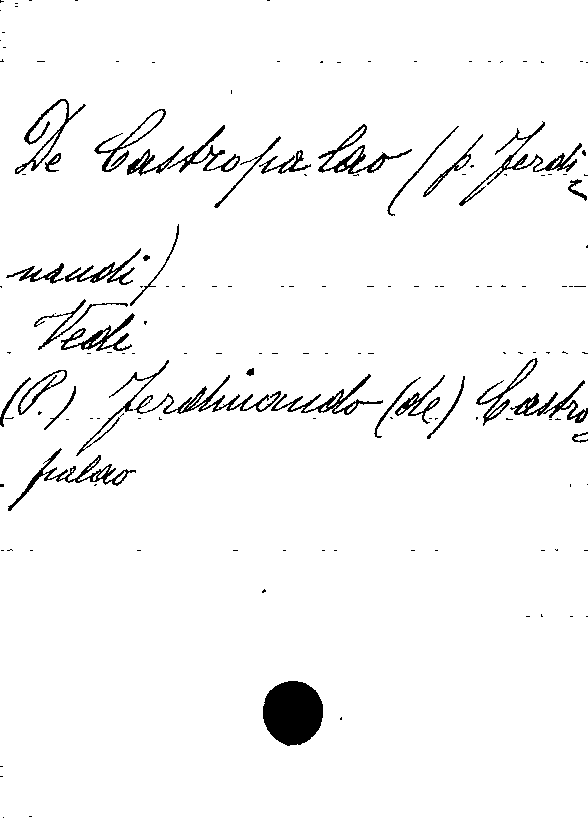 De Castropalao (p. Ferdi-
nandi)
Vedi
(P.) Ferdinando (de) Castro-
palao